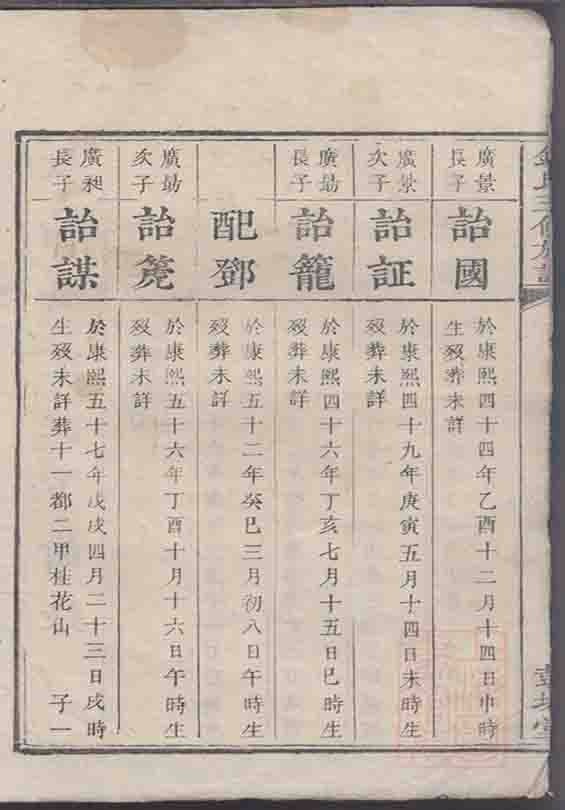 廣景
長子
詒國
於康熙四十四年乙酉十二月十四日申時
生歿葬未詳
廣景
次子
詒証
於康熙四十九年庚寅五月十四日未時生
歿葬未詳
廣勛
長子
詒籠
於康熙四十六年丁亥七月十五日巳時生
歿葬未詳
配鄧
於康熙五十二年癸巳三月初八日午時生
歿葬未詳
廣勛
次子
詒篪
於康熙五十六年丁酉十月十六日午時生
歿葬未詳
廣昶
長子
詒謀
於康熙五十七年戊戌四月二十三日戌時
生歿未詳葬十一都二甲桂花山 子一